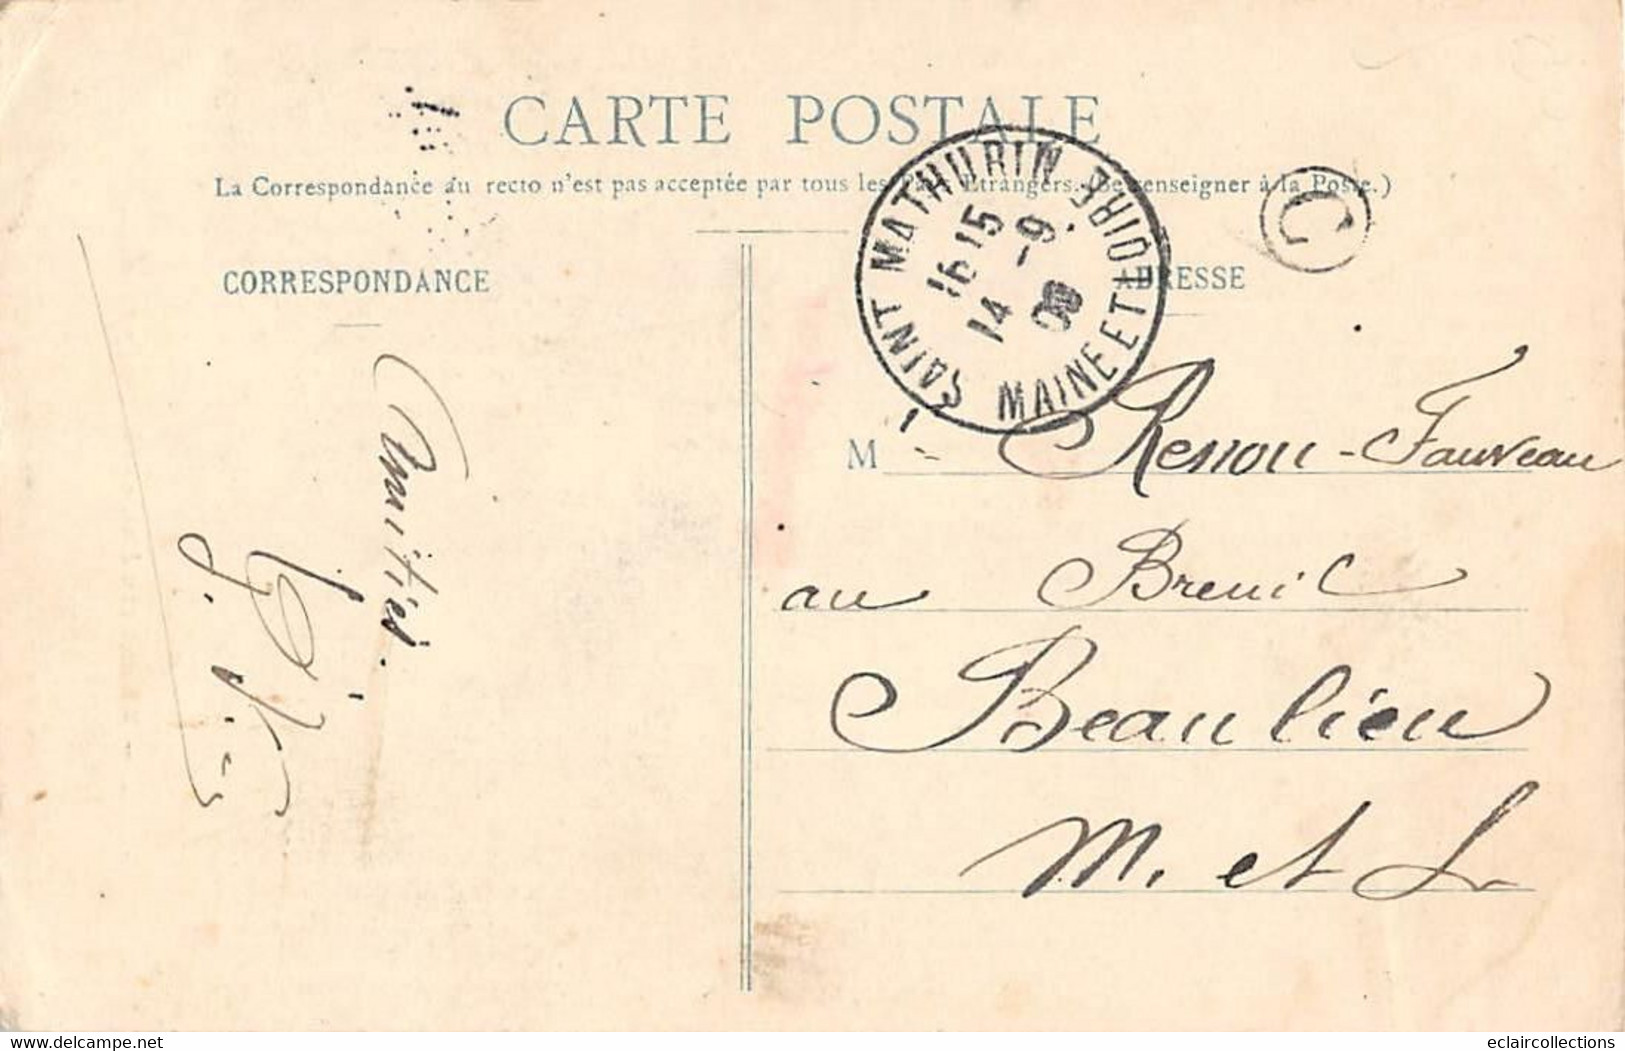 CARTE POSTALE
La Correspondance au recto n'est pas acceptée par tous les Pays Etrangers. (Se renseigner à la Poste.)
CORRESPONDANCE
ADRESSE
SAINT MATHURIN
MAINE ET LOIRE
16 15
14 - 9
C
M Renou - Fauveau
au Breuil
Beaulieu
M. et L.
Amitiés.
delcampe.net
eclaircollections